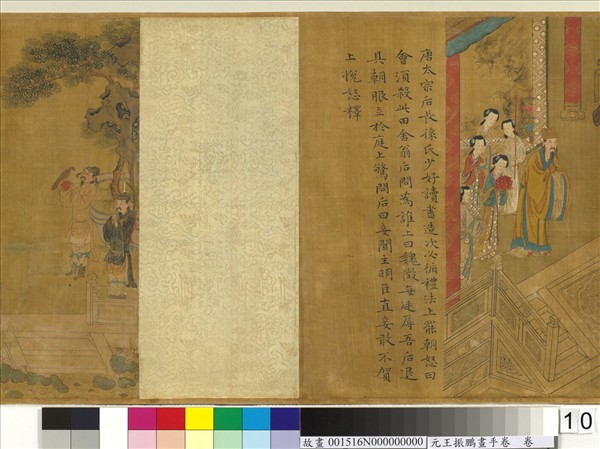 唐太宗后長孫氏少好讀書造次必循禮法上罷朝怒曰
會須殺此田舍翁后問為誰上曰魏徵每廷辱吾后退
具朝服立於庭上驚問后曰妾聞主明臣直妾敢不賀
上悅怒釋
10
故畫 001516N000000000
元王振鵬畫手卷 卷